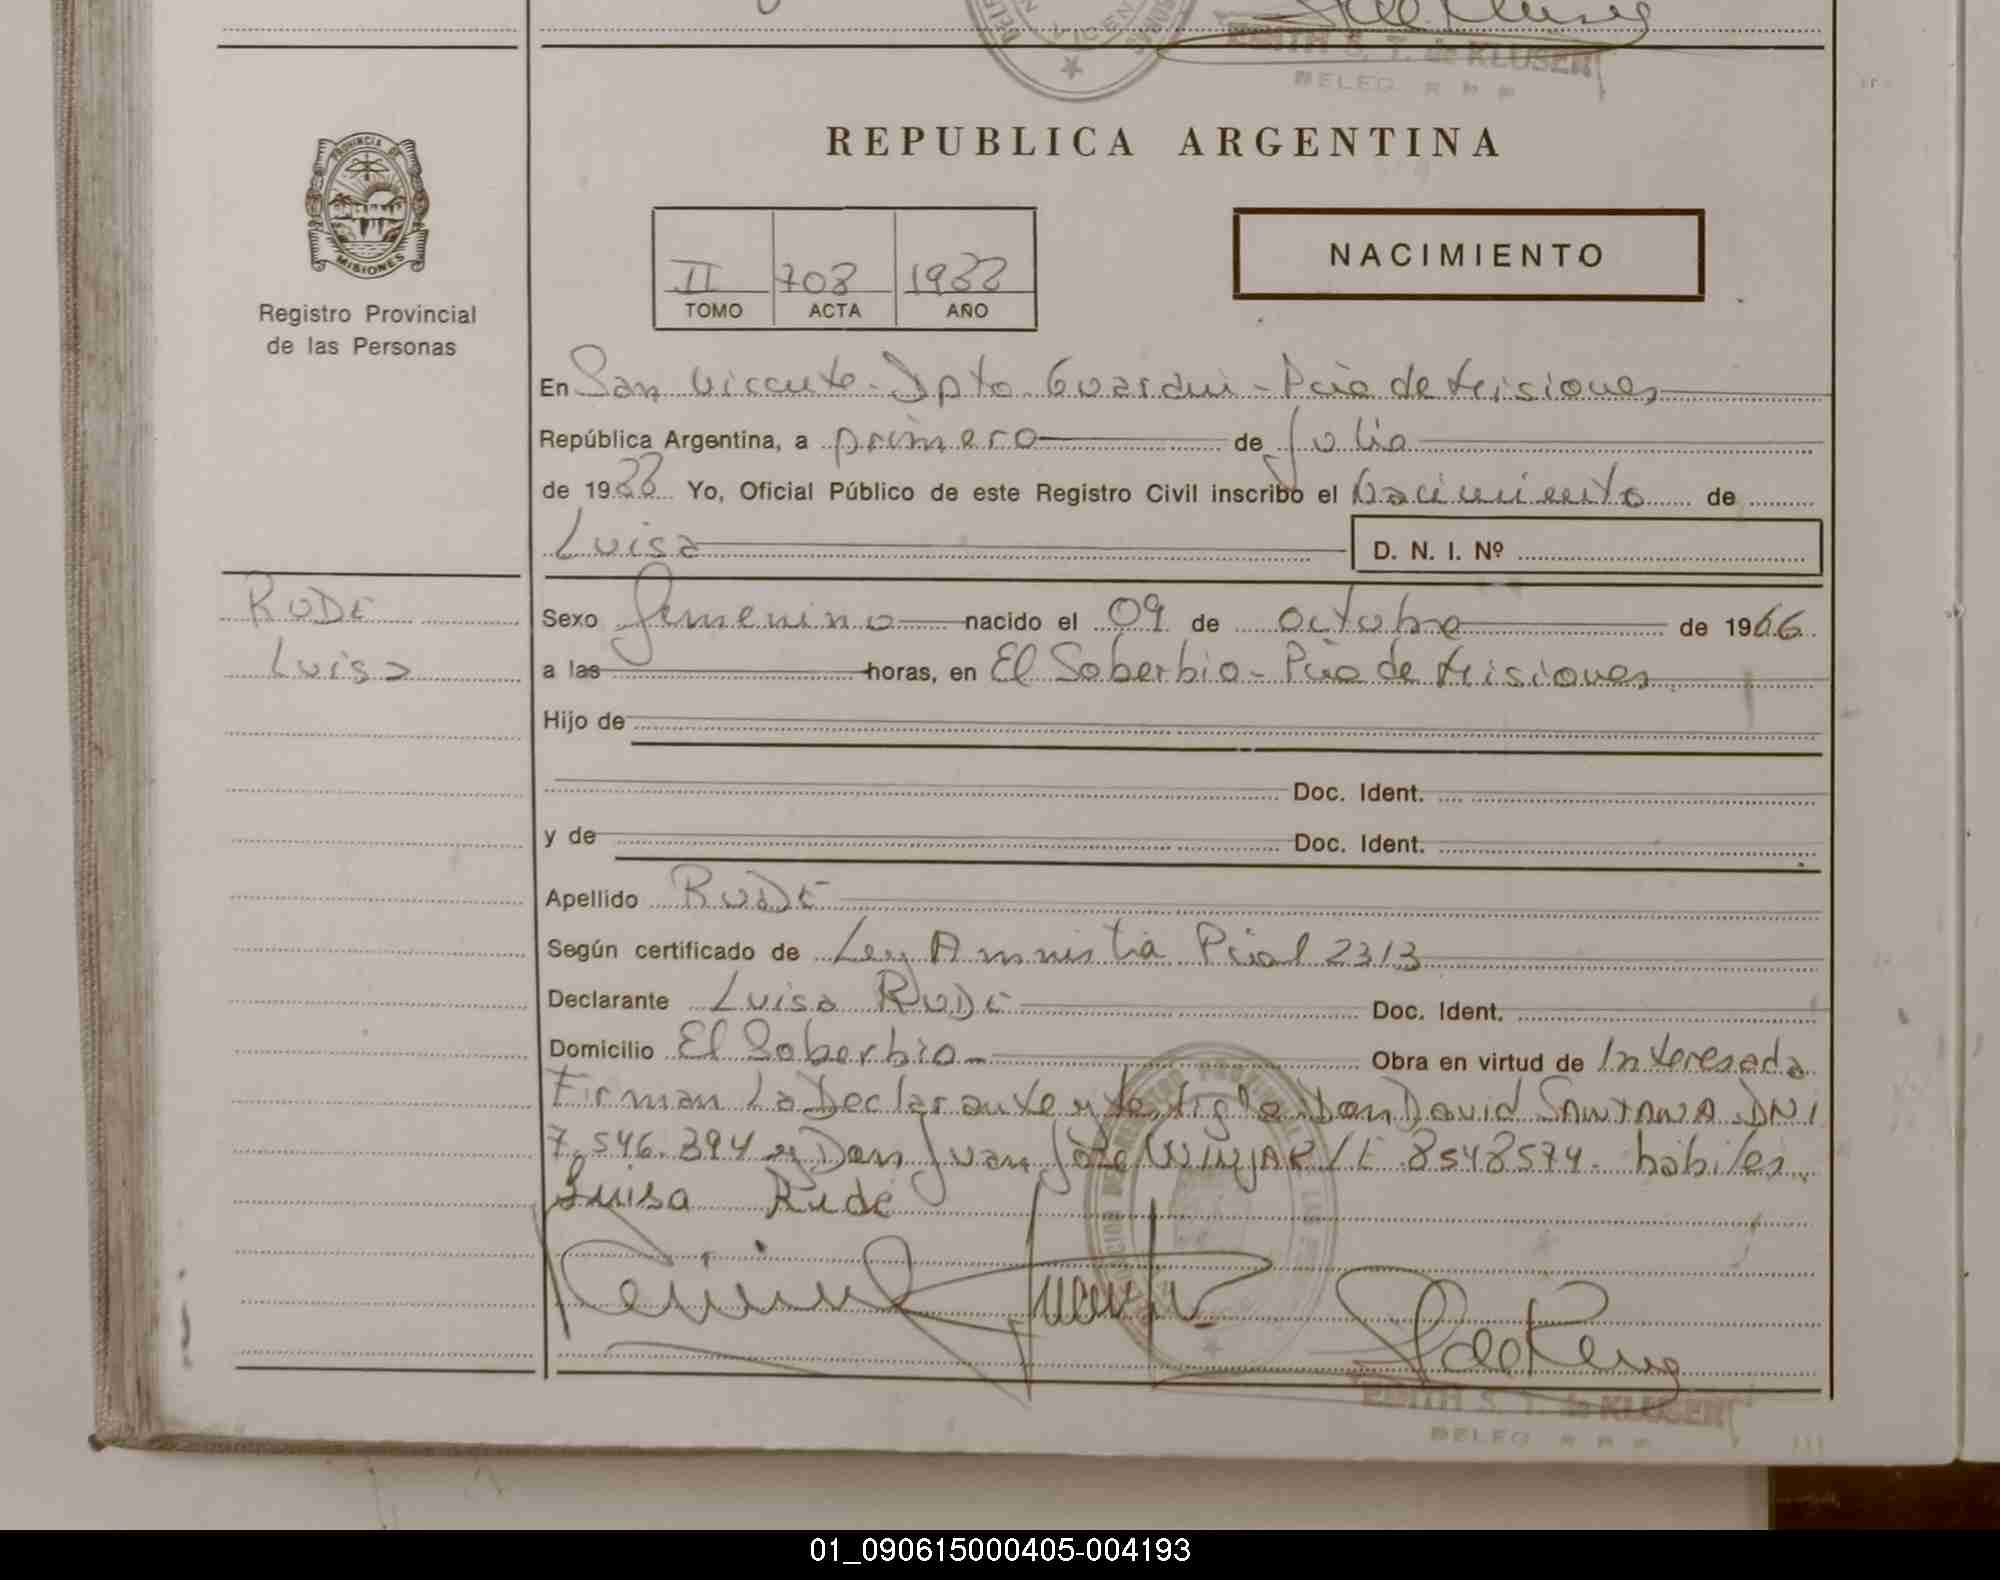 EDITH S. T. de KLUSENER
DELEG R P P
REPUBLICA ARGENTINA
PROVINCIA DE
MISIONES
Registro Provincial
de las Personas
NACIMIENTO
II 708 1988
TOMO ACTA AÑO
En San Vicente - Dpto. Guarani - Pcia de Misiones
República Argentina, a primero de Julio
de 1988 Yo, Oficial Público de este Registro Civil inscribo el Nacimiento de
Luisa D. N. I. Nº
RUDE
Luisa
Sexo femenino nacido el 09 de octubre de 1966
a las horas, en El Soberbio - Pcia de Misiones
Hijo de
Doc. Ident.
y de Doc. Ident.
Apellido RUDE
Según certificado de Ley Amnistia Pcial 2313
Declarante Luisa RUDE Doc. Ident.
Domicilio El Soberbio Obra en virtud de Interesada
Firman La Declarante y testigos Don David SANTANA DNI
7.546.394 y Don Juan José LE 8548574. habiles.
Luisa Rudé
EDITH S. T. de KLUSENER
DELEG R P P
01_090615000405-004193